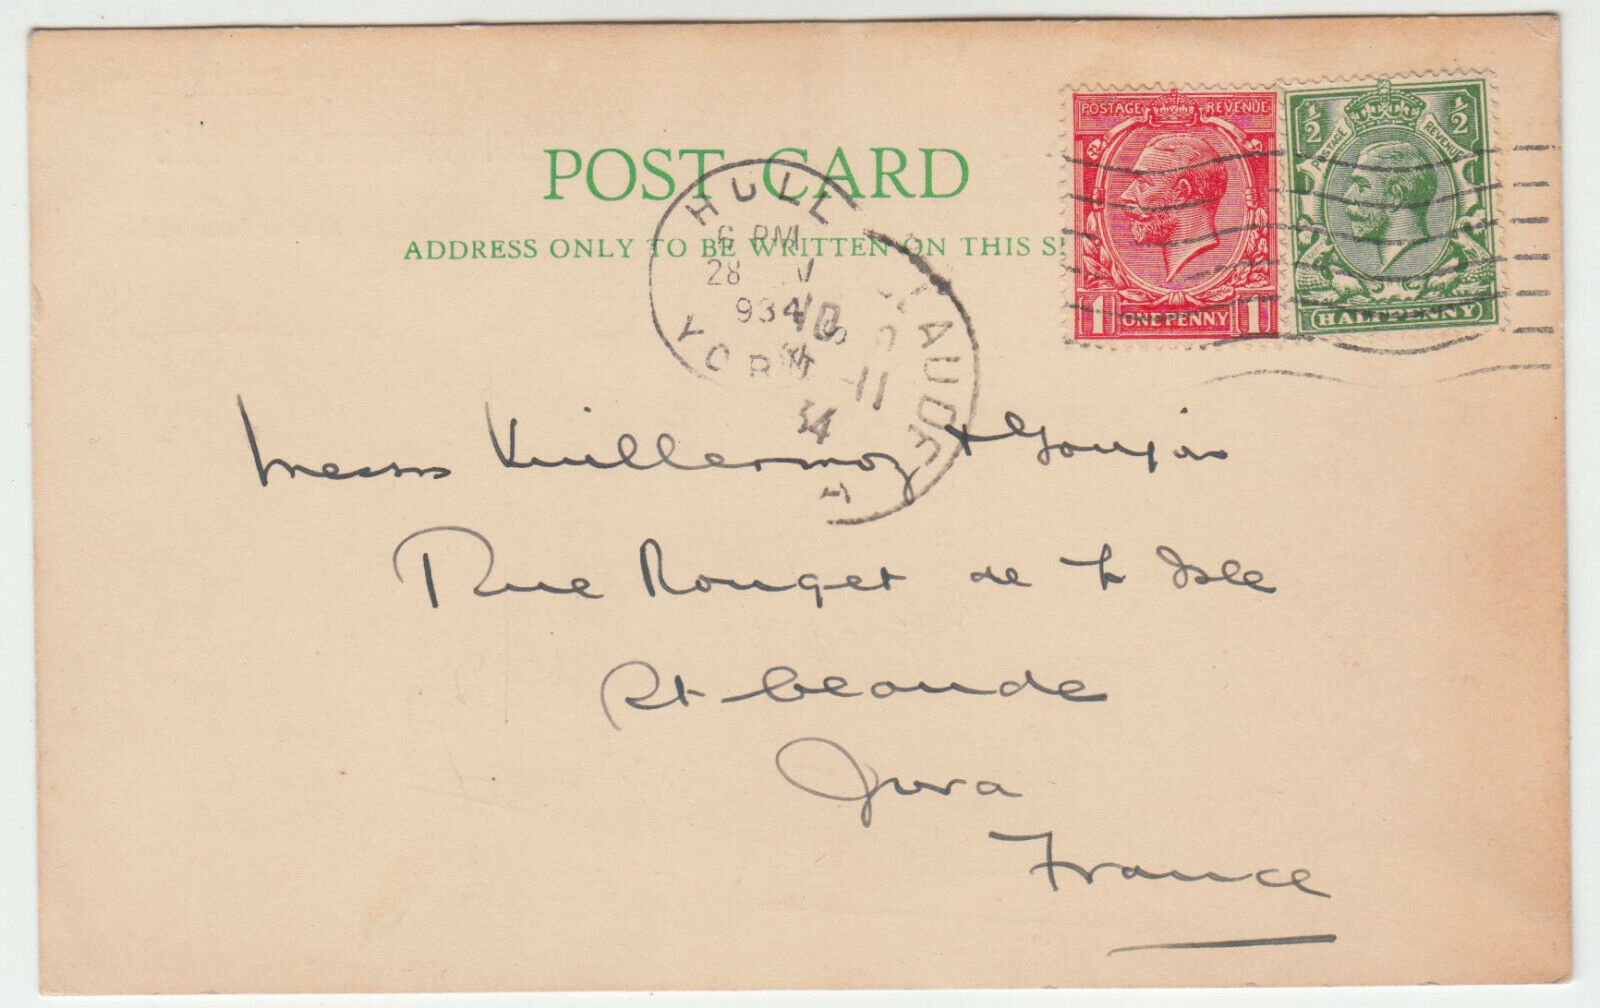 POST CARD
ADDRESS ONLY TO BE WRITTEN ON THIS S
POSTAGE REVENUE
1 ONE PENNY 1
½ ½
POSTAGE REVENUE
HALFPENNY
HULL
6 PM
28
934
YOR
11
34
Messrs Vuillermoz & Goujon
Rue Rouget de L Isle
St Claude
Jura
France